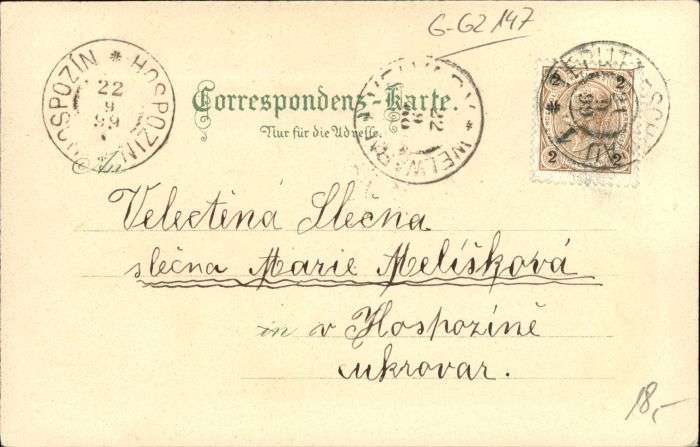 G-G2 147
HOSPOZÍN * HOSPOZIN
22
9
99
Correspondenz-Karte.
Nur für die Adresse.
WELWARN *
22
9
2
2
2
An
Velectěná Slečna
slečna Marie Melíšková
in v Hospozíně
cukrovar.
18,-